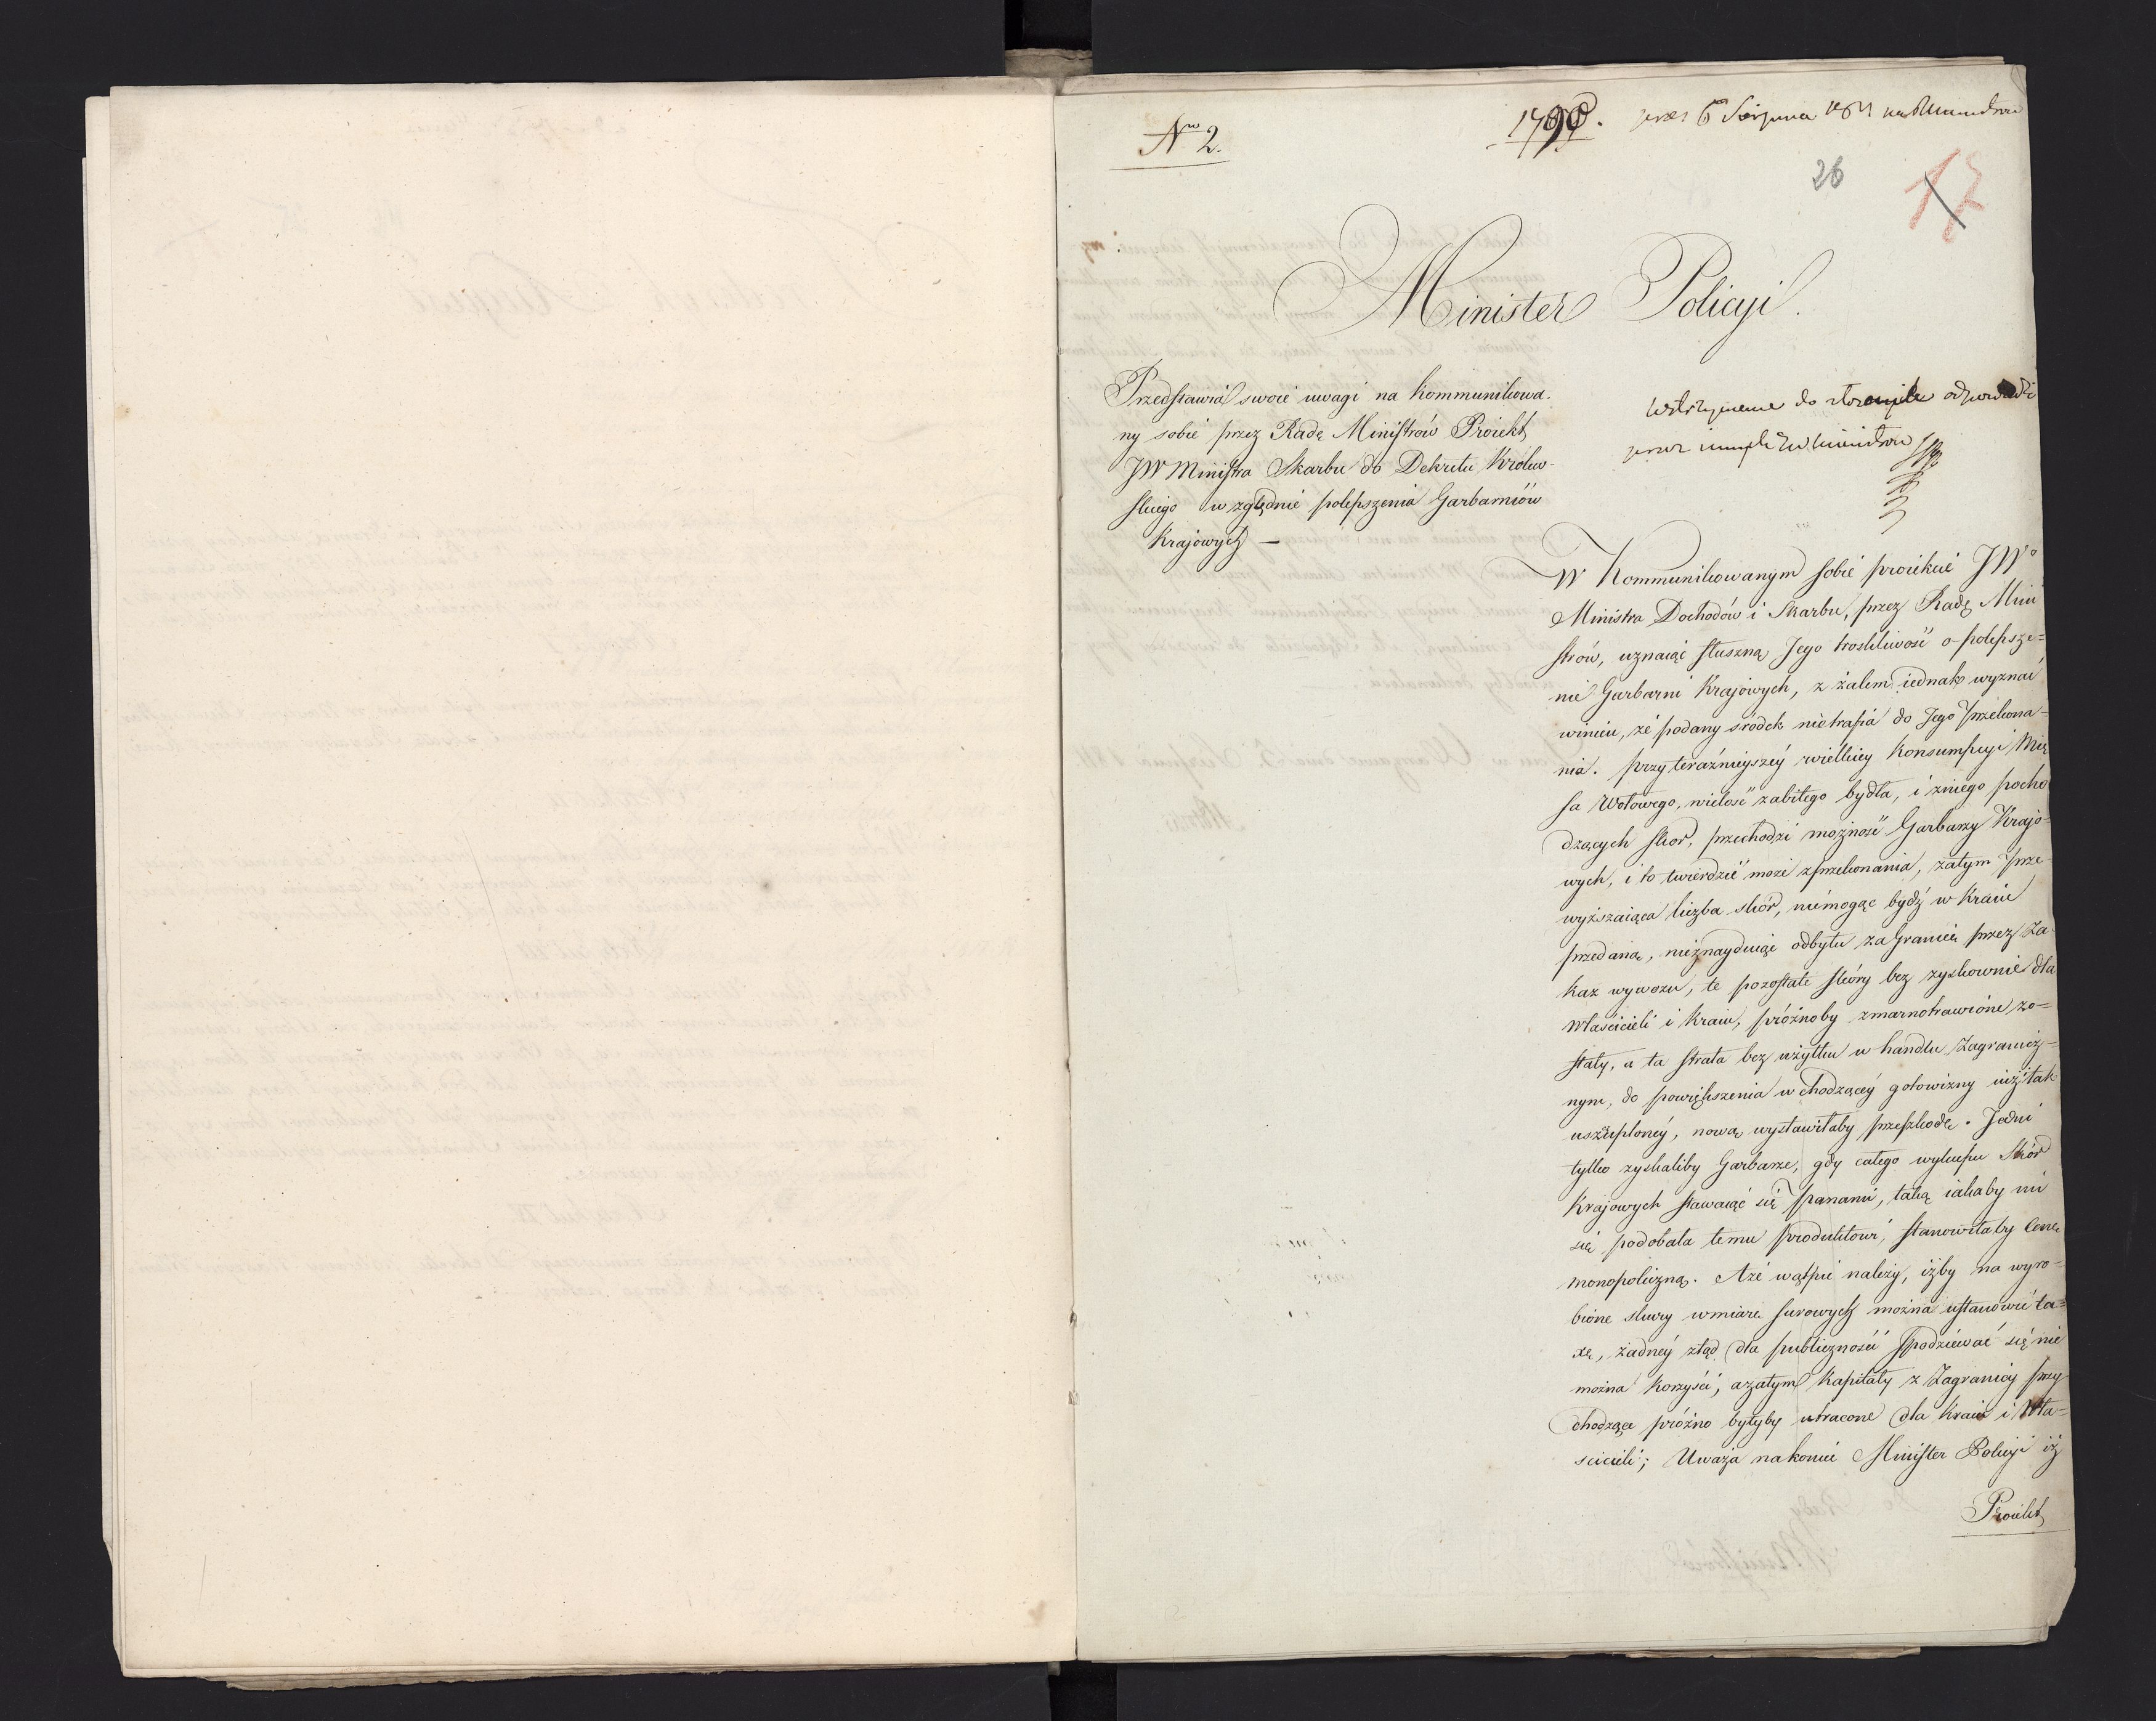 Nro 2.
1798. prez 6 Sierpnia 1811
26
17
Minister Policyi.
Przedstawia swoie uwagi na kommunikowa-
ny sobie przez Radę Ministrów Proiekt
JW Ministra Skarbu do Dekretu Królew-
skiego względnie polepszenia Garbarniów
Krajowych —
Wstrzymane do odpowiedzi
przez
W Kommunikowanym sobie proiekcie JWo
Ministra Dochodów i Skarbu, przez Radę Mini
strów, uznaiąc słuszną Jego troskliwość o polepsze=
nie Garbarni Krajowych, z żalem iednak wyznać
winien, że podany srodek nietrafia do Jego przekona=
nia. przy teraźnieyszéy wielkiey Konsumpcyi Mię
sa Wołowego, wielość zabitego bydła, i zniego pocho
dzących skor, przechodzi możność Garbarzy Krajo=
wych, i to twierdzić może z przekonania, zatym prze-
wyższaiąca liczba skór, niemogąc bydź w Kraiu
przedaną, nieznayduiąc odbytu za Granicę przez Za-
kaz wywozu, te pozostałe skóry bez zyskownie dla
Właścicieli i Kraiu, próżnoby zmarnotrawione zo=
stały, a ta strata bez użytku w handlu Zagranicz=
nym, do powiększenia wchodzącéy gotowizny iuż tak
uszczuploney, nową wystawiłaby przeszkodę. Jedni
tylko zyskaliby Garbarze, gdy całego wykupu Skór
Krajowych stawaiąc się panami, taką iakaby im
się podobała temu produktowi, stanowiłaby Cenę
monopoliczną. Aże wątpić należy, iżby na wyro=
bione skury w miarę surowych można ustanowić ta=
xę, żadnéy ztąd dla publiczności spodziéwać się nie
można korzyści, azatym Kapitały z Zagranicy przy
chodzące próżno byłyby utracone dla Kraiu i Wła=
scicieli; Uważa nakoniec Minister Policyi iż
Proiekt